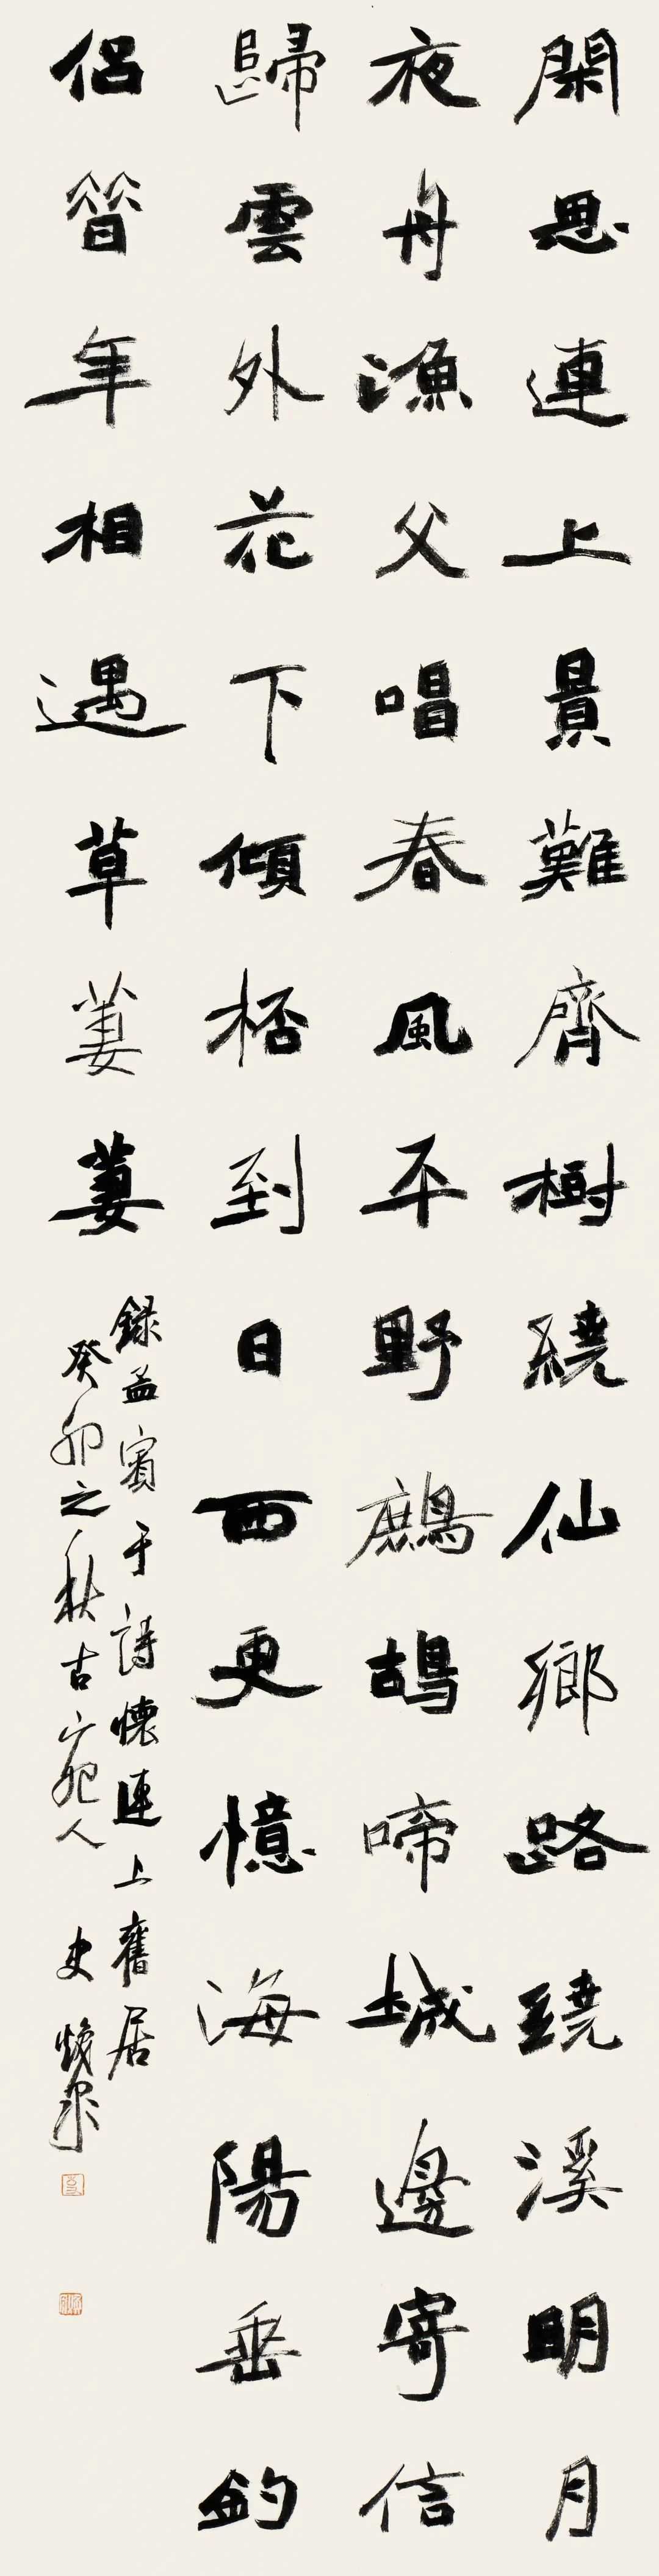 閑思連上景難齊樹繞仙鄉路繞溪明月
夜舟漁父唱春風平野鷓鴣啼城邊寄信
歸雲外花下傾桮到日西更憶海陽垂釣
侶昔年相遇草萋萋
錄孟賓于詩懷連上舊居
癸卯之秋古宛人史煥泉